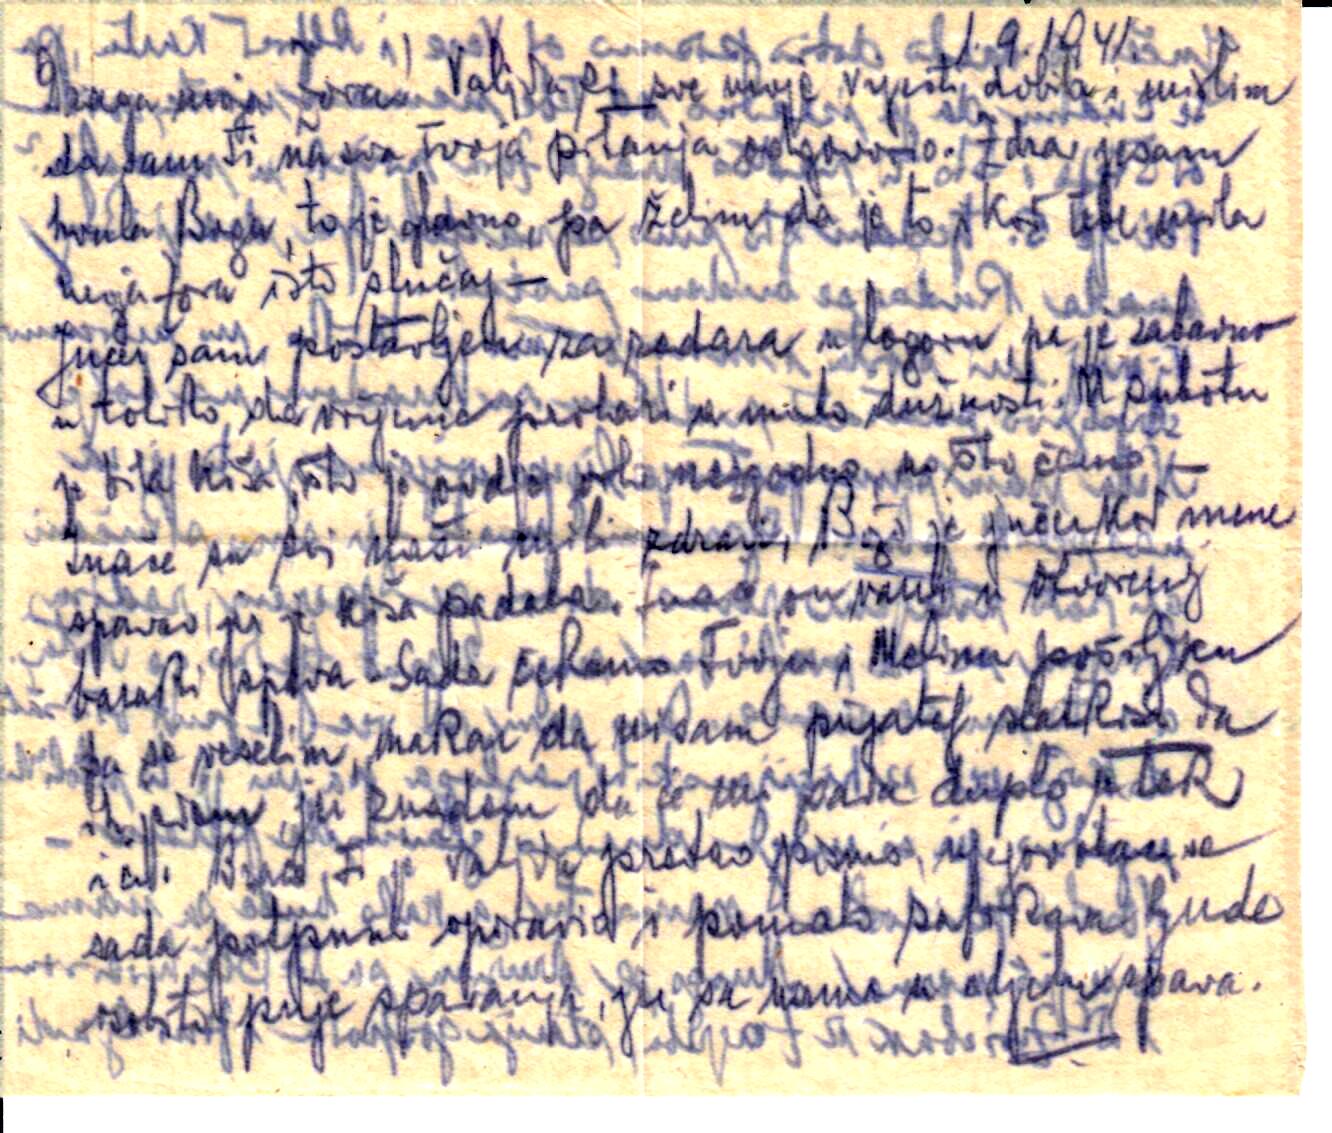 1.9.1941.
Draga moja Valjda si sve moje vijesti dobila i mislim
da sam Ti na sva Tvoja pitanja odgovorio. Zdrav jesam
hvala Bogu, to je glavno, pa želim da je to i kod tebe mila
moja isto slučaj —
Jučer sam postavljen za redara u logoru, pa je zabavno
u toliko, da vrijeme prolazi u miru dužnosti. U subotu
je bila kiša, što je ovdje vrlo nezgodno, no što ćemo —
Inače su svi naši zdravi, Božo je jučer kod mene
spavao jer je kiša padala. Inače on vani u otvorenoj
baraki spava. Sada čekamo Tvoju i Melinu pošiljku
pa se veselim, makar da nisam prijatelj slatkiša da
ih jer znadem da će mi
Ti je valjda predao pismo,
sada potpuno oporavio i pomalo ljude
osobito prije spavanja, jer sa nama u odjelu spava.